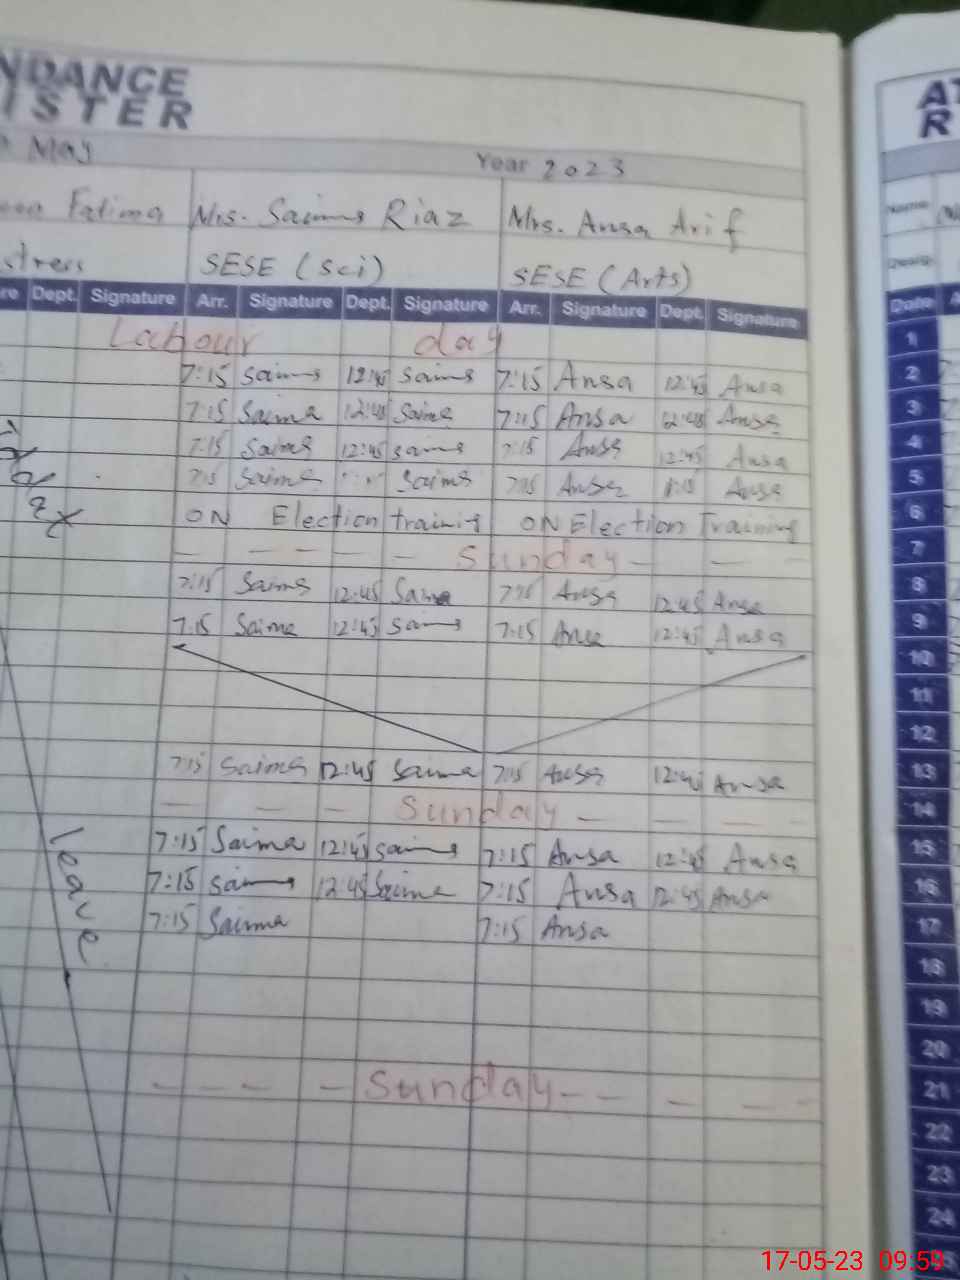 NDANCE
ISTER
May Year 2023
Fatima Mrs. Saima Riaz Mrs. Ansa Arif
stress SESE (Sci) SESE (Arts)
re Dept. Signature Arr. Signature Dept. Signature Arr. Signature Dept. Signature
Labour day
7:15 Saima 12:45 Saima 7:15 Ansa 12:45 Ansa
7:15 Saima 12:45 Saima 7:15 Ansa 12:45 Ansa
7:15 Saima 12:45 Saima 7:15 Ansa 12:45 Ansa
7:15 Saima Saima 7:15 Ansa Ansa
ON Election training ON Election Training
— — — — — Sunday — — —
7:15 Saima 12:45 Saima 7:15 Ansa 12:45 Ansa
7:15 Saima 12:45 Saima 7:15 Ansa 12:45 Ansa
7:15 Saima 12:45 Saima 7:15 Ansa 12:45 Ansa
— — — Sunday — — — —
7:15 Saima 12:45 Saima 7:15 Ansa 12:45 Ansa
7:15 Saima 12:45 Saima 7:15 Ansa 12:45 Ansa
7:15 Saima 7:15 Ansa
— — — — Sunday — — — — —
leave
AT
R
Name
Desig.
Date A
1
2
3
4
5
6
7
8
9
10
11
12
13
14
15
16
17
18
19
20
21
22
23
24
17-05-23 09:59